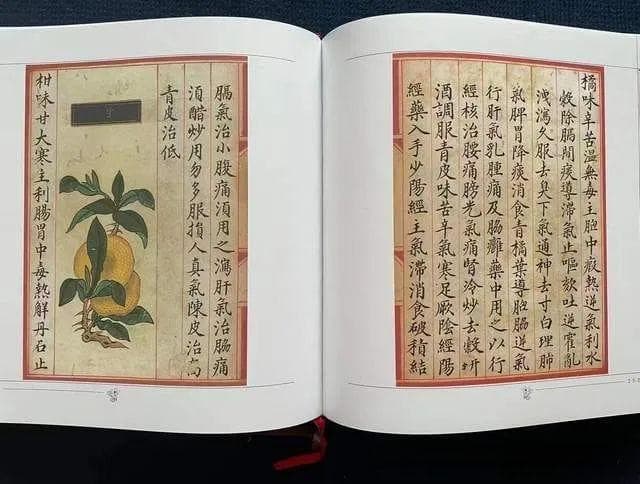 橘味辛苦溫無毒主胸中瘕熱逆氣利水
穀除膈間痰導滯氣止嘔欬吐逆霍亂
洩瀉久服去臭下氣通神去寸白理肺
氣脾胃降痰消食青橘葉導胸脇逆氣
行肝氣乳腫痛及脇癰藥中用之以行
經核治腰痛膀光氣痛腎冷炒去殼研
酒調服青皮味苦辛氣寒足厥陰經陽
經藥入手少陽經主氣滯消食破積結
膈氣治小腹痛須用之瀉肝氣治脇痛
須醋炒用勿多服損人真氣陳皮治高
青皮治低
柑味甘大寒主利腸胃中毒熱解丹石止